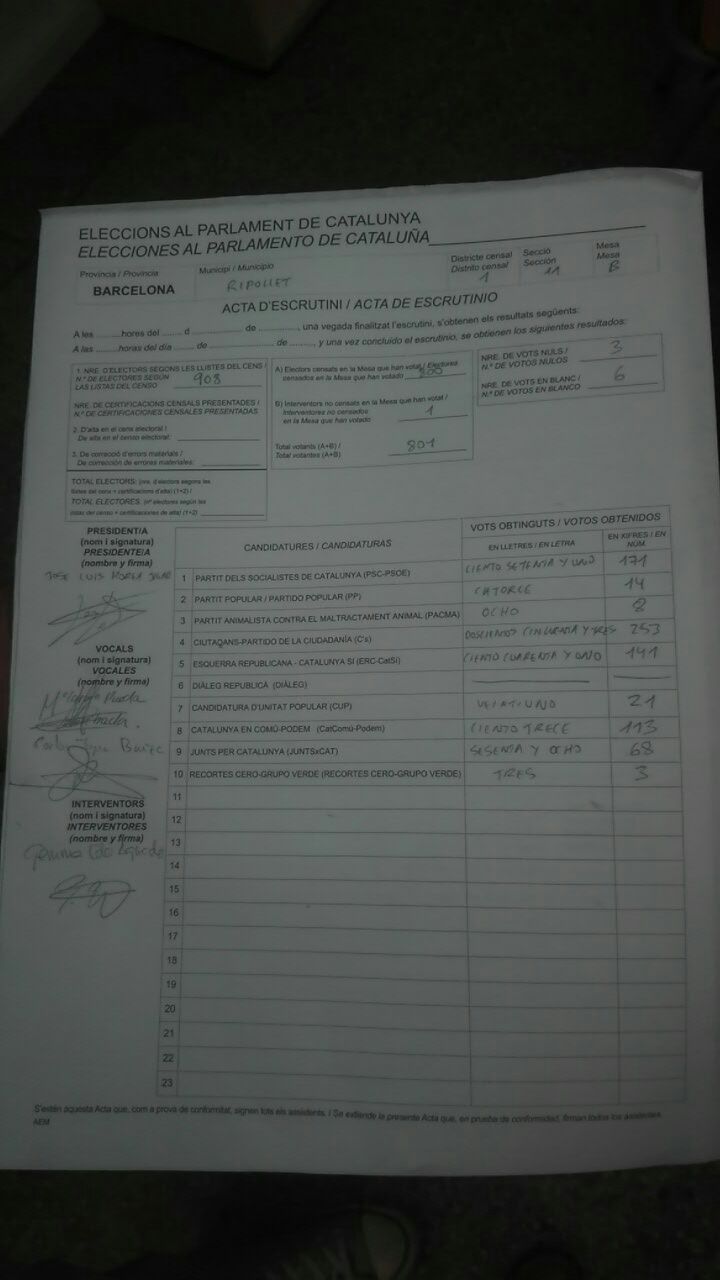 ELECCIONS AL PARLAMENT DE CATALUNYA
ELECCIONES AL PARLAMENTO DE CATALUÑA
Província / Provincia
BARCELONA
Municipi / Municipio
RIPOLLET
Districte censal
Distrito censal
1
Secció
Sección
11
Mesa
Mesa
B
ACTA D'ESCRUTINI / ACTA DE ESCRUTINIO
A les ........... hores del ..... d ................. de ............., una vegada finalitzat l'escrutini, s'obtenen els resultats següents:
A las ........... horas del día ..... de ................. de ........, y una vez concluido el escrutinio, se obtienen los siguientes resultados:
1. NRE. D'ELECTORS SEGONS LES LLISTES DEL CENS /
N.º DE ELECTORES SEGÚN
LAS LISTAS DEL CENSO 908
NRE. DE CERTIFICACIONS CENSALS PRESENTADES /
N.º DE CERTIFICACIONES CENSALES PRESENTADAS
2. D'alta en el cens electoral /
De alta en el censo electoral:
3. De correcció d'errors materials /
De corrección de errores materiales:
TOTAL ELECTORS: (nre. d'electors segons les
llistes del cens + certificacions d'alta) (1+2) /
TOTAL ELECTORES: (nº electores según las
listas del censo + certificaciones de alta) (1+2)
A) Electors censats en la Mesa que han votat / Electores
censados en la Mesa que han votado 800
B) Interventors no censats en la Mesa que han votat /
Interventores no censados
en la Mesa que han votado 1
Total votants (A+B) /
Total votantes (A+B) 801
NRE. DE VOTS NULS /
N.º DE VOTOS NULOS 3
NRE. DE VOTS EN BLANC /
N.º DE VOTOS EN BLANCO 6
PRESIDENT/A
(nom i signatura)
PRESIDENTE/A
(nombre y firma)
JOSE LUIS
VOCALS
(nom i signatura)
VOCALES
(nombre y firma)
INTERVENTORS
(nom i signatura)
INTERVENTORES
(nombre y firma)
CANDIDATURES / CANDIDATURAS
VOTS OBTINGUTS / VOTOS OBTENIDOS
EN LLETRES / EN LETRA
EN XIFRES / EN NÚM.
1 PARTIT DELS SOCIALISTES DE CATALUNYA (PSC-PSOE) CIENTO SETENTA Y UNO 171
2 PARTIT POPULAR / PARTIDO POPULAR (PP) CATORCE 14
3 PARTIT ANIMALISTA CONTRA EL MALTRACTAMENT ANIMAL (PACMA) OCHO 8
4 CIUTADANS-PARTIDO DE LA CIUDADANÍA (C's) DOSCIENTOS CINCUENTA Y TRES 253
5 ESQUERRA REPUBLICANA - CATALUNYA SÍ (ERC-CatSí) CIENTO CUARENTA Y UNO 141
6 DIÀLEG REPUBLICÀ (DIÀLEG)
7 CANDIDATURA D'UNITAT POPULAR (CUP) VEINTIUNO 21
8 CATALUNYA EN COMÚ-PODEM (CatComú-Podem) CIENTO TRECE 113
9 JUNTS PER CATALUNYA (JUNTSxCAT) SESENTA Y OCHO 68
10 RECORTES CERO-GRUPO VERDE (RECORTES CERO-GRUPO VERDE) TRES 3
11
12
13
14
15
16
17
18
19
20
21
22
23
S'estén aquesta Acta que, com a prova de conformitat, signen tots els assistents. / Se extiende la presente Acta que, en prueba de conformidad, firman todos los asistentes.
AEM